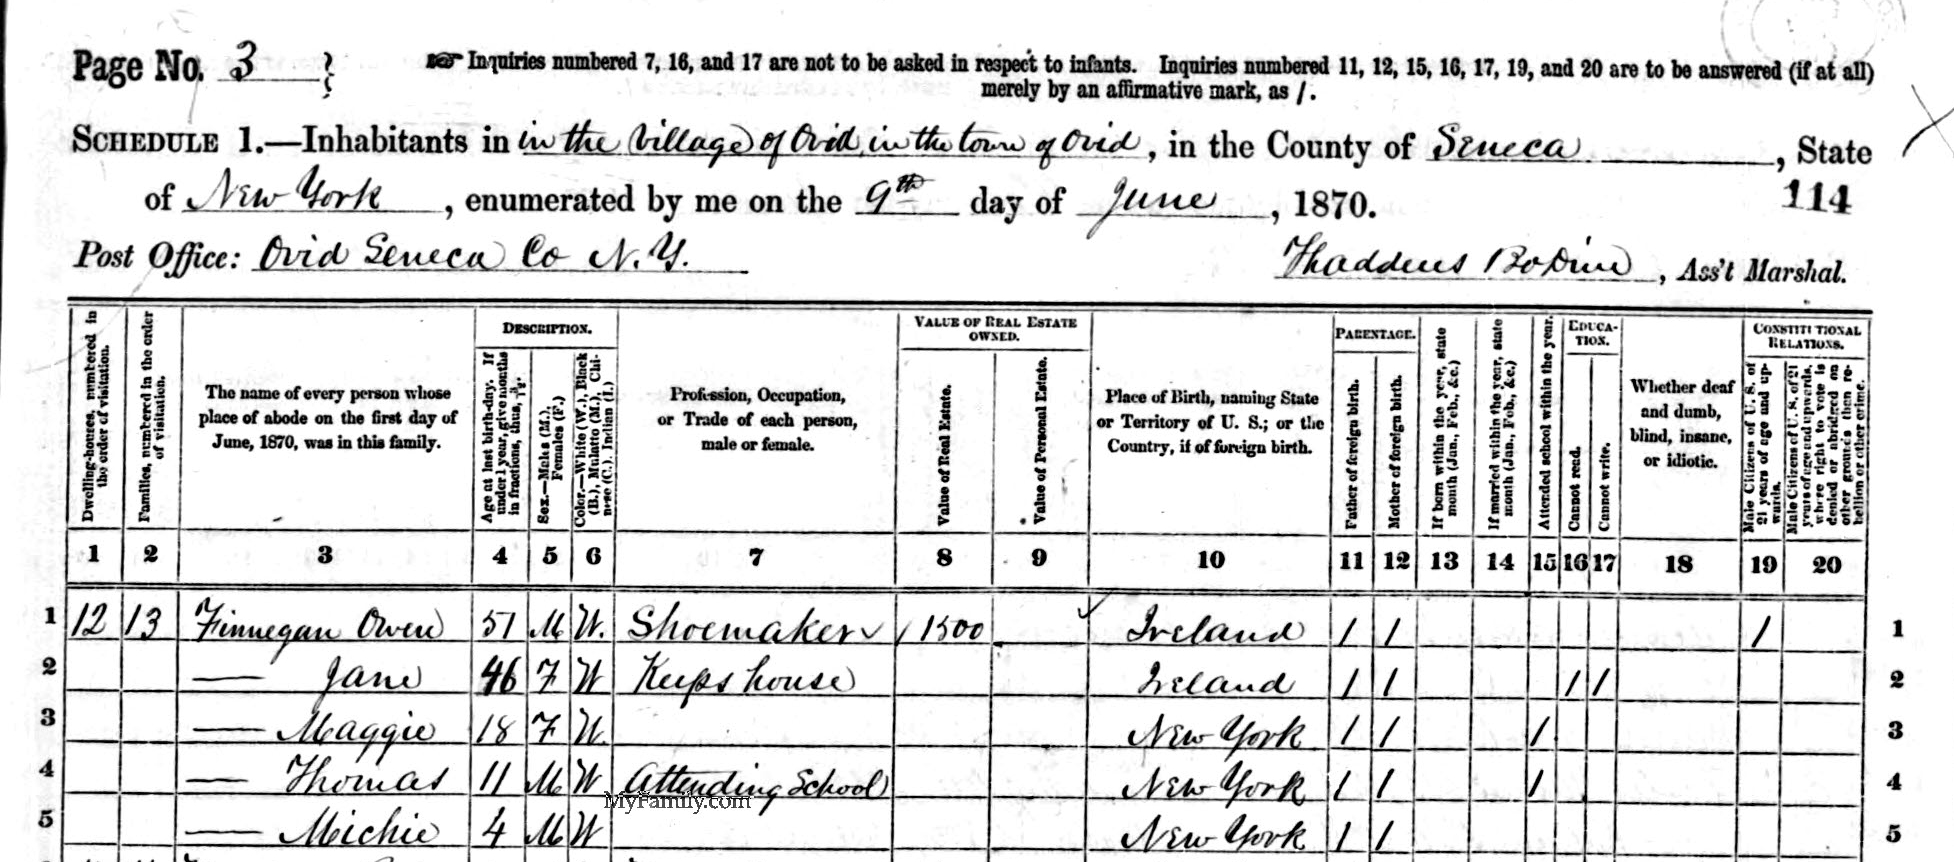 Page No. 3
Inquiries numbered 7, 16, and 17 are not to be asked in respect to infants. Inquiries numbered 11, 12, 15, 16, 17, 19, and 20 are to be answered (if at all)
merely by an affirmative mark, as /.
SCHEDULE 1.—Inhabitants in in the Village of Ovid, in the town of Ovid, in the County of Seneca, State
of New York, enumerated by me on the 9th day of June, 1870.
114
Post Office: Ovid Seneca Co N.Y.
Thaddeus Bodine, Ass't Marshal.
Dwelling-houses, numbered in the order of visitation.
Families, numbered in the order of visitation.
The name of every person whose place of abode on the first day of June, 1870, was in this family.
DESCRIPTION.
Age at last birth-day. If under 1 year, give months in fractions, thus, 3/12.
Sex.—Males (M.), Females (F.)
Color.—White (W.), Black (B.), Mulatto (M.), Chinese (C.), Indian (I.)
Profession, Occupation, or Trade of each person, male or female.
VALUE OF REAL ESTATE OWNED.
Value of Real Estate.
Value of Personal Estate.
Place of Birth, naming State or Territory of U. S.; or the Country, if of foreign birth.
PARENTAGE.
Father of foreign birth.
Mother of foreign birth.
If born within the year, state month (Jan., Feb., &c.)
If married within the year, state month (Jan., Feb., &c.)
Attended school within the year.
EDUCATION.
Cannot read.
Cannot write.
Whether deaf and dumb, blind, insane, or idiotic.
CONSTITUTIONAL RELATIONS.
Male Citizens of U. S. of 21 years of age and upwards.
Male Citizens of U. S. of 21 years of age and upwards, where right to vote is denied or abridged on other grounds than rebellion or other crime.
1 2 3 4 5 6 7 8 9 10 11 12 13 14 15 16 17 18 19 20
1 12 13 Finnegan Owen 51 M W. Shoemaker 1500 Ireland / / / 1
2 — Jane 46 F W Keeps house Ireland / / / / 2
3 — Maggie 18 F W. New York / / / 3
4 — Thomas 11 M W Attending School New York / / / 4
MyFamily.com
5 — Michie 4 M W New York / / 5